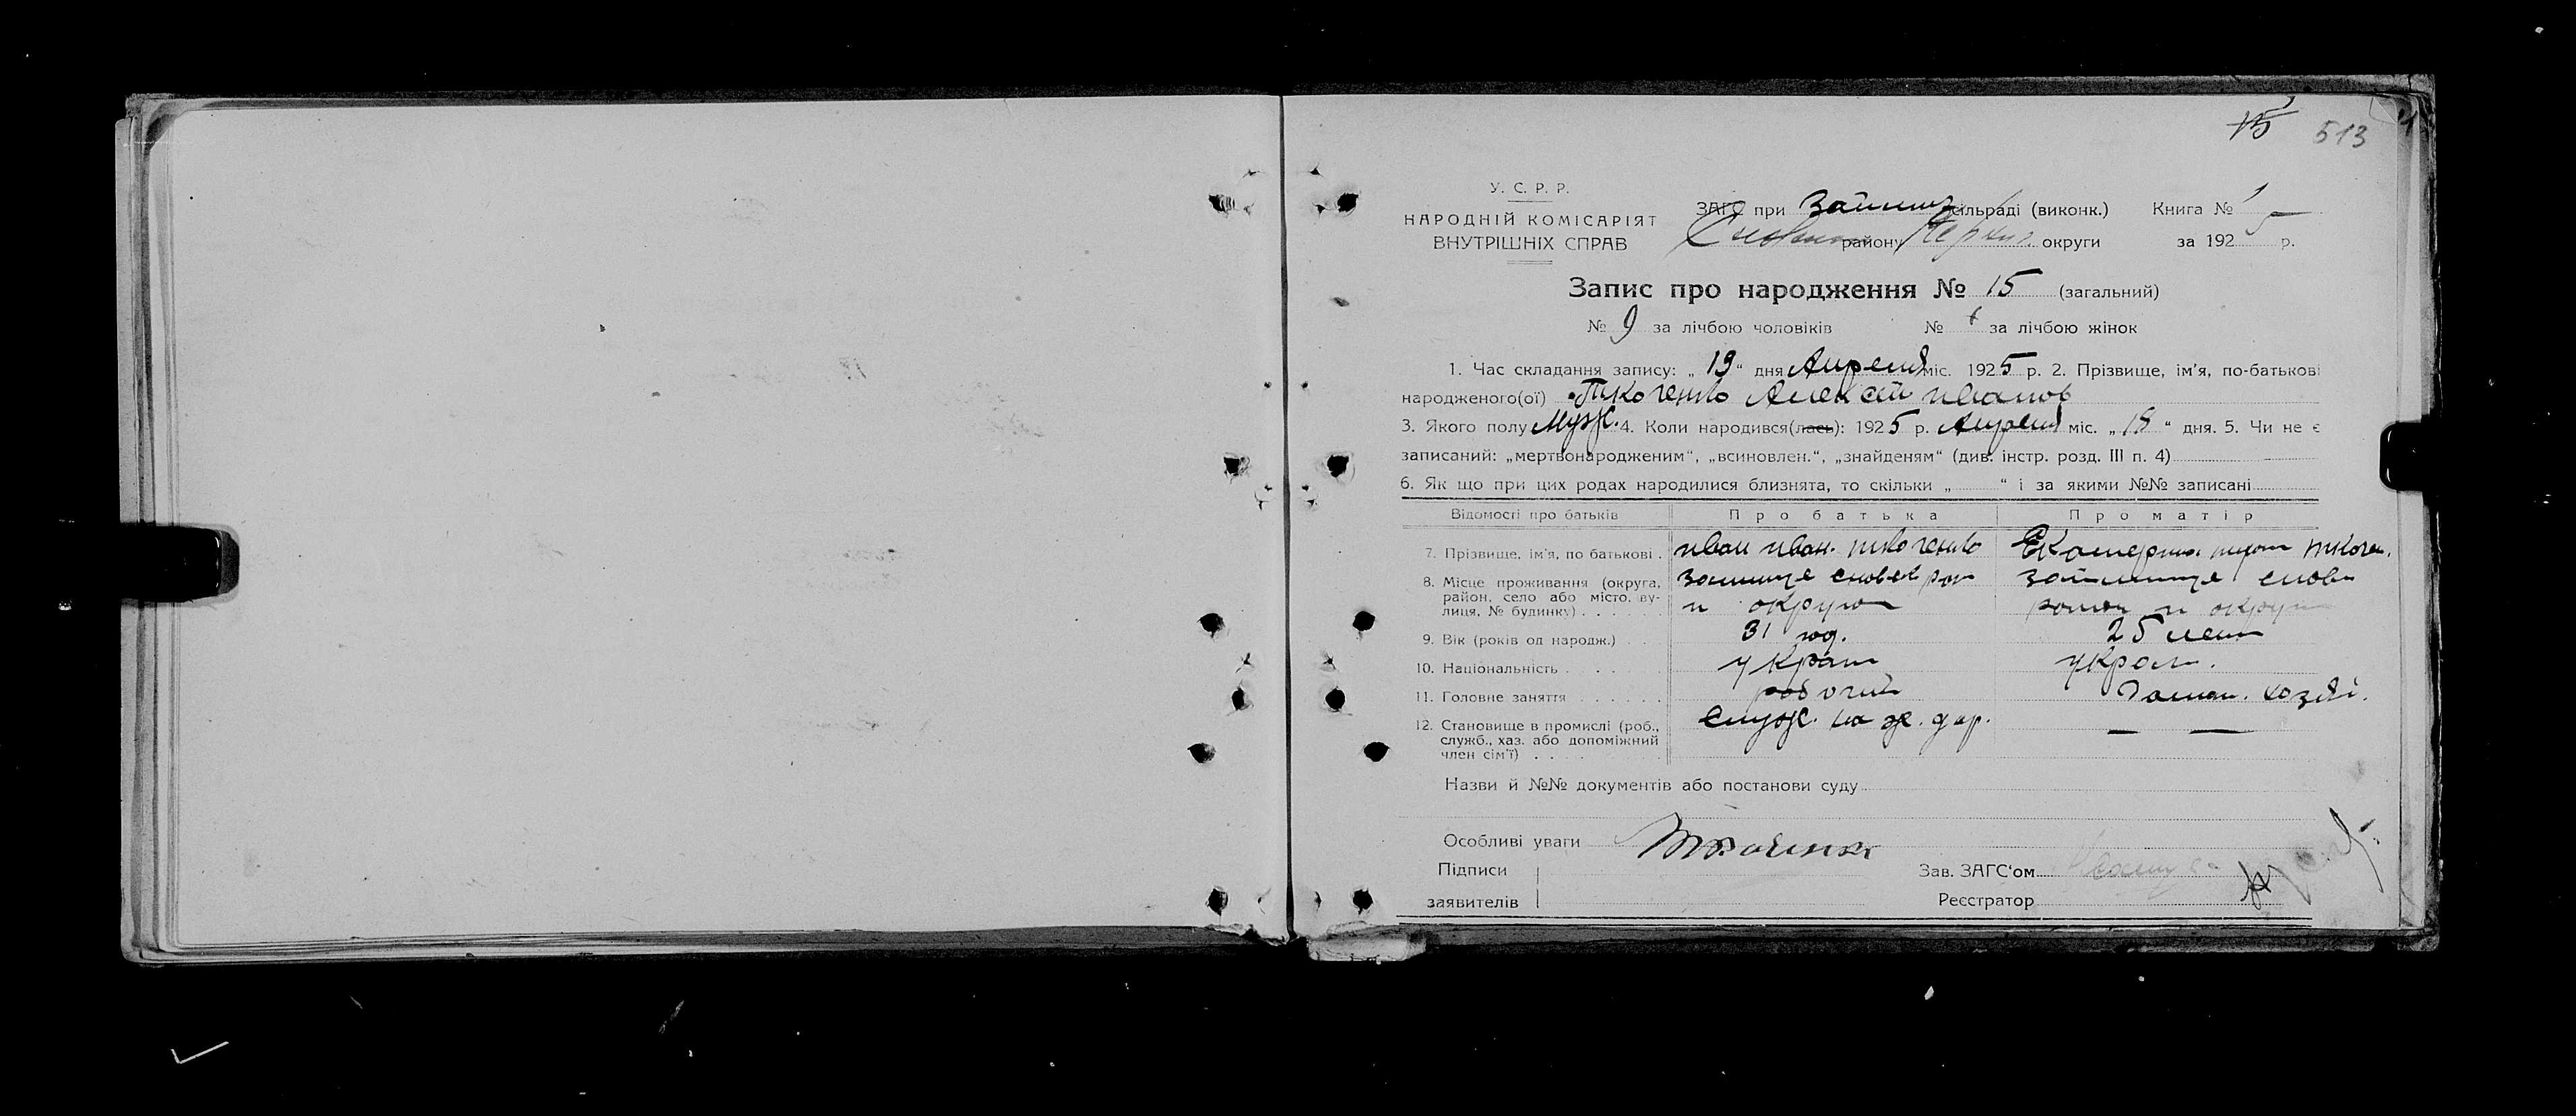 15 513
У. С. Р. Р.
НАРОДНІЙ КОМІСАРІЯТ
ВНУТРІШНІХ СПРАВ
ЗАГС при Займищ сільраді (виконк.) Книга № 1
Сновск району округи за 1925 р.
Запис про народження № 15 (загальний)
№ 9 за лічбою чоловіків № за лічбою жінок
1. Час складання запису: „19“ дня Апреля міс. 1925 р. 2. Прізвище, ім'я, по-батькові
народженого(ої) Ткоченко Алексей иванов
3. Якого полу Муж. 4. Коли народився(лась): 1925 р. Апреля міс. „18“ дня. 5. Чи не є
записаний: „мертвонародженим“, „всиновлен.“, „знайденям“ (див. інстр. розд. III п. 4)
6. Як що при цих родах народилися близнята, то скільки „ “ і за якими №№ записані
Відомості про батьків Про батька Про матір
7. Прізвище, ім'я, по батькові . иван иван. ткоченко Екатерина ткочен.
8. Місце проживання (округа, займище сновск рай займище снов
район, село або місто, ву-
лиця, № будинку) . . . . . и округа района и округа
9. Вік (років од народж.) . 31 год. 25 лет
10. Національність . . . . . украин украин.
11. Головне заняття . . . . . . рабочий Домаш. хозяй.
12. Становище в промислі (роб., служ. на ж. дор. — —
служб., хаз. або допоміжний
член сім'ї) . . . .
Назви й №№ документів або постанови суду
Особливі уваги Ткаченко
Підписи Зав. ЗАГС'ом
заявителів Реєстратор